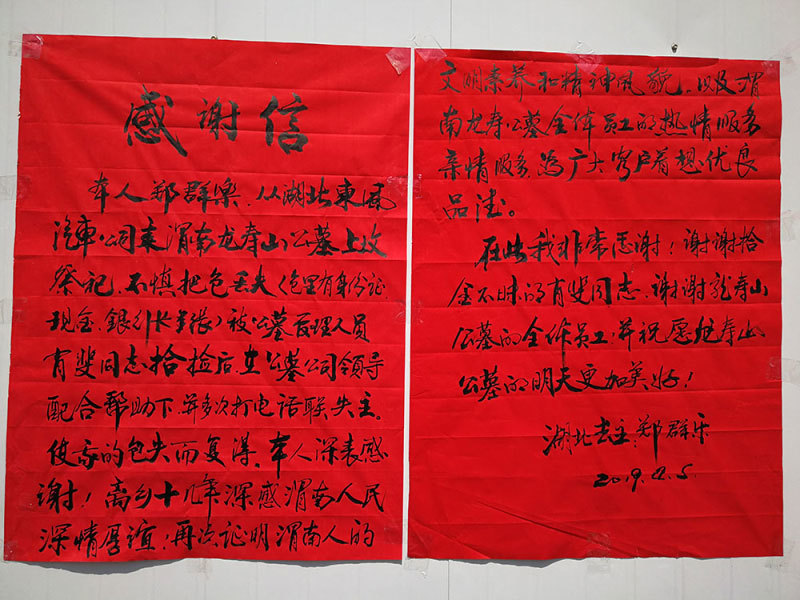 感谢信
本人郑群乐，从湖北東風
汽車公司来渭南龙寿山公墓上坟
祭祀，不慎把包丢失（包里有身份证
现金、銀行卡等）被公墓管理人员
育斐同志拾捡后在公墓公司领导
配合帮助下，并多次打电话联失主。
使我的包失而复得，本人深表感
谢！离乡十几年深感渭南人民
深情厚谊，再次证明渭南人的
文明素养和精神风貌，以及渭
南龙寿公墓全体员工的热情服务
亲情服务，为广大客户着想优良
品德。
在此我非常感谢！谢谢拾
金不昧的育斐同志，谢谢龙寿山
公墓的全体员工，并祝愿龙寿山
公墓的明天更加美好！
湖北失主：郑群乐
2019.4.5.